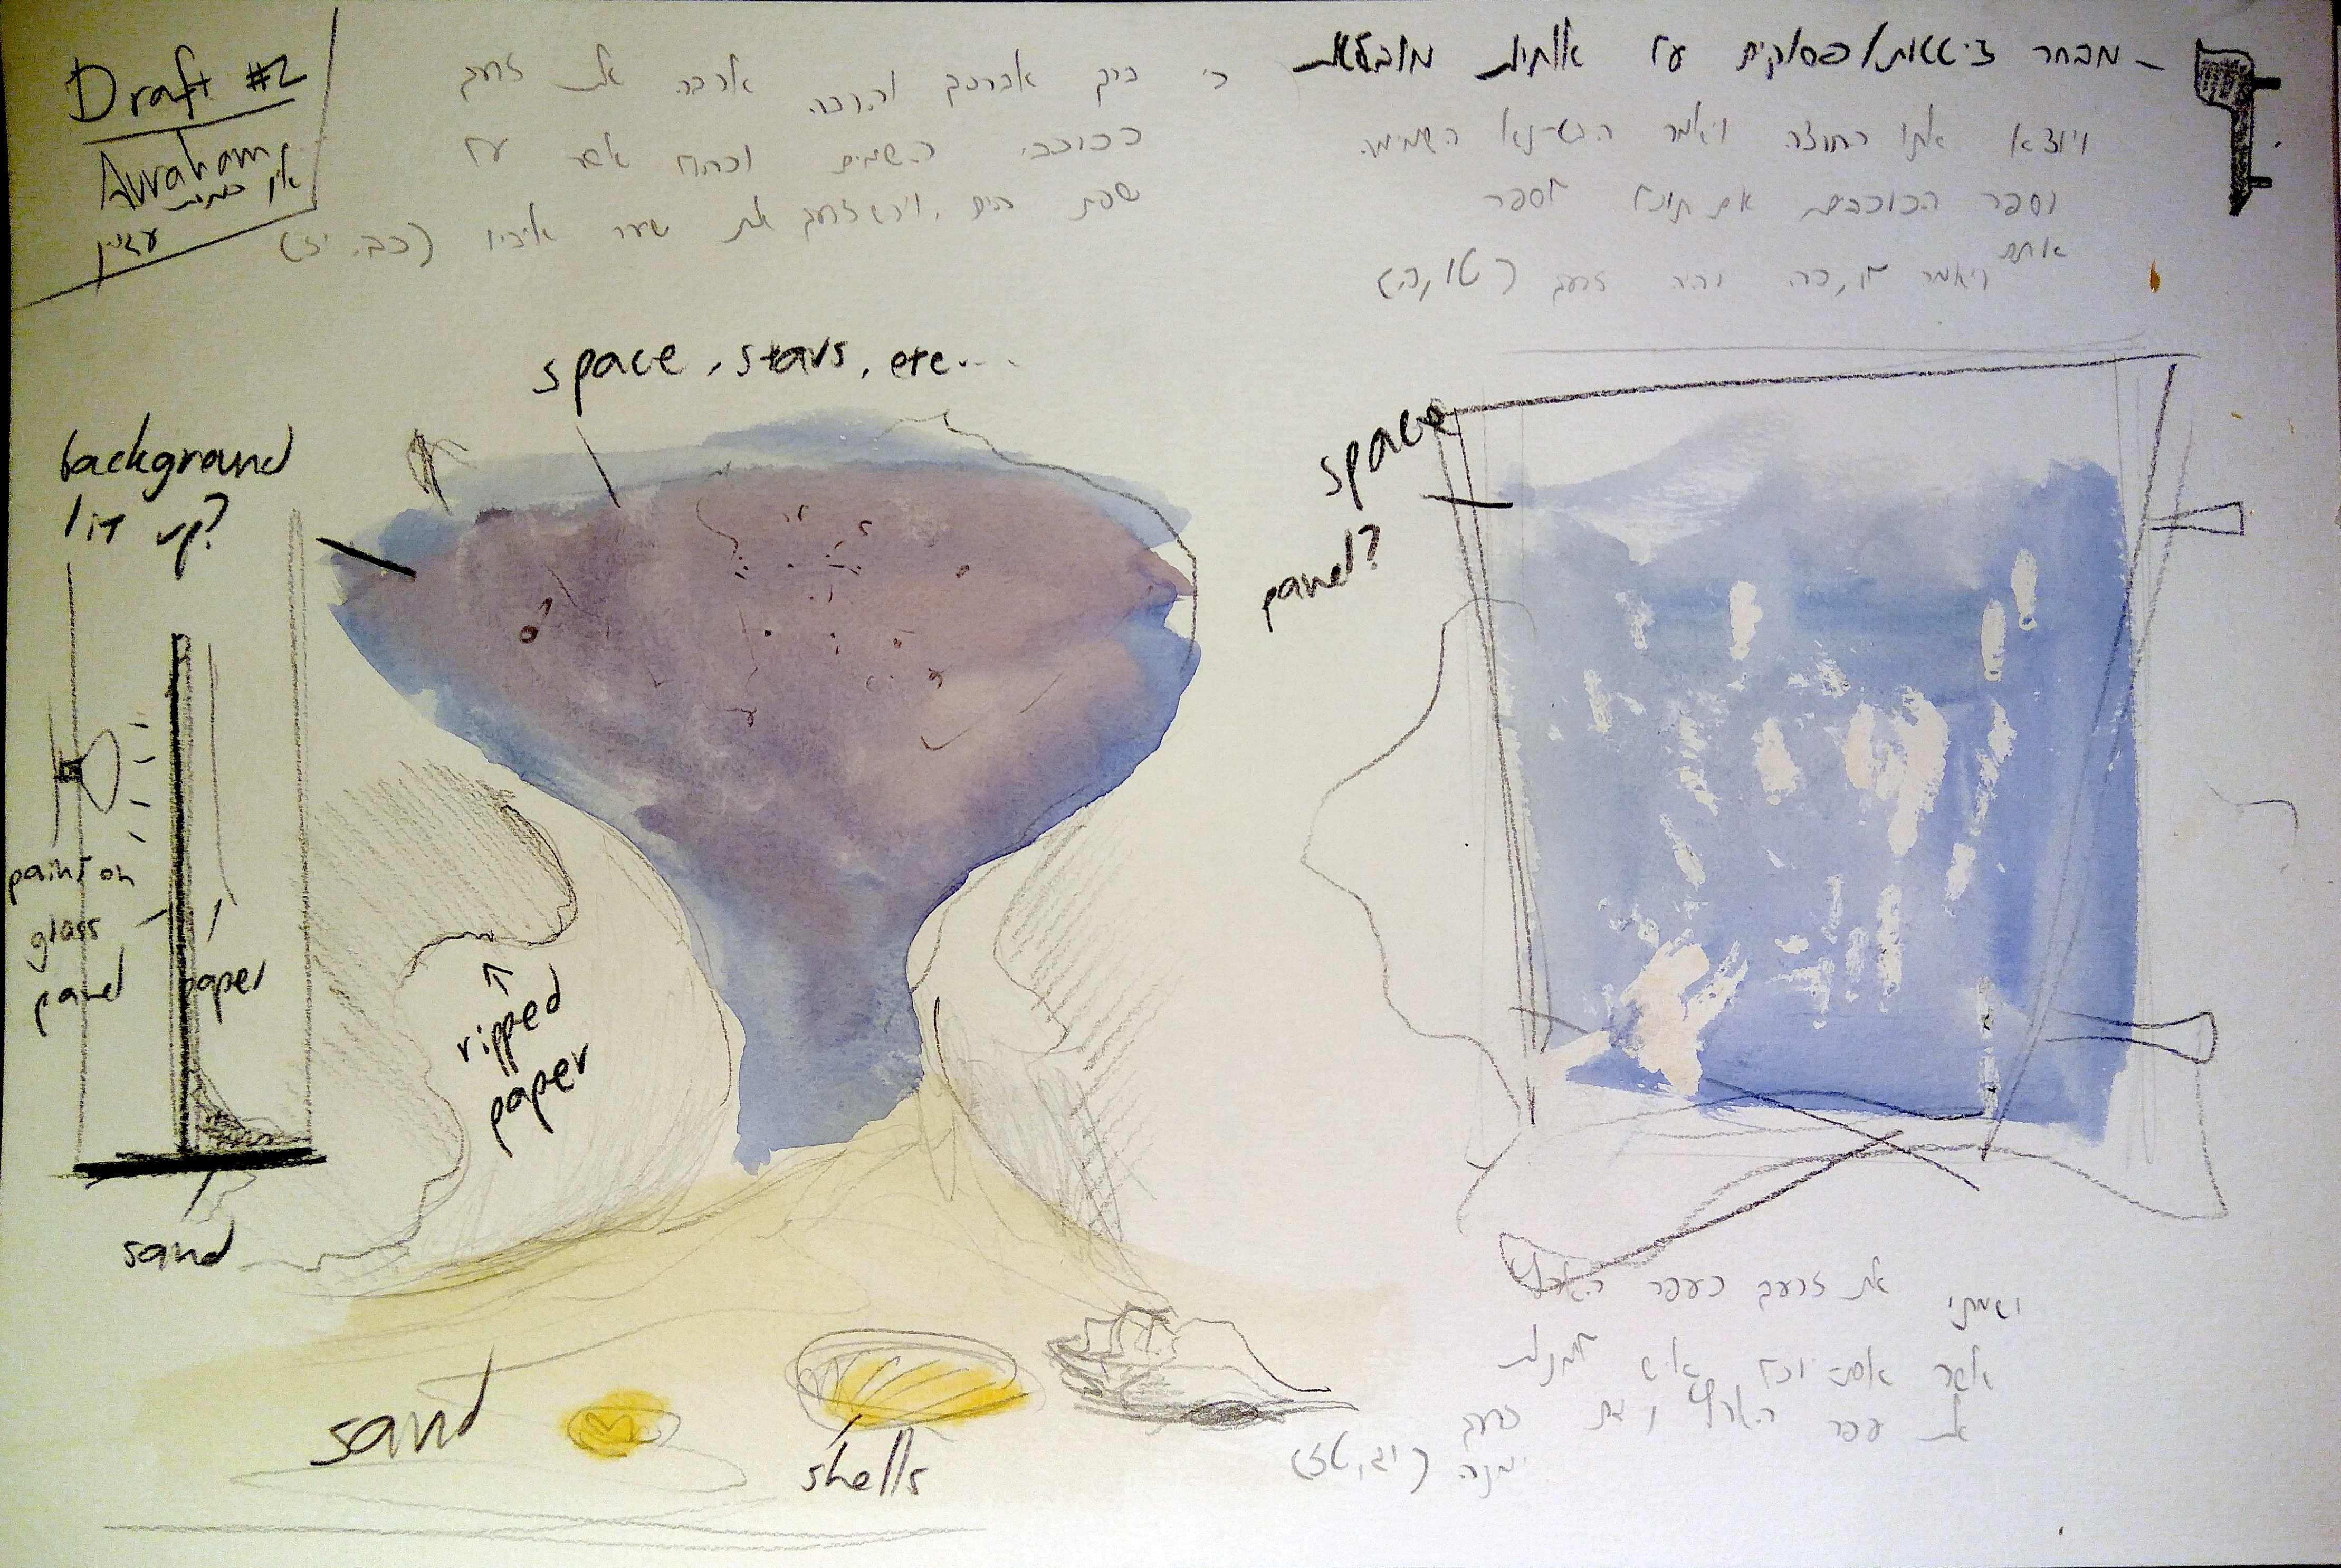 Draft #2
Avraham
אין כמות
עדיין
- מבחר ציטטות/פסוקים על אותיות
ויוצא אתו החוצה ויאמר הבט-נא השמימה
וספר הכוכבים אם תוכל לספר
אותם
ויאמר לו, כה יהיה זרעך (טו,ה)
כי ברך אברכך והרבה ארבה את זרעך
ככוכבי השמים וכחול אשר על
שפת הים, וירש זרעך את שער איביו (כב, יז)
space, stars, etc...
background
lit up?
paint on
glass
panel
paper
sand
ripped
paper
space
panel?
sand
shells
ושמתי את זרעך כעפר הארץ
אשר אם יוכל איש למנות
את עפר הארץ גם זרעך
ימנה (יג,טז)